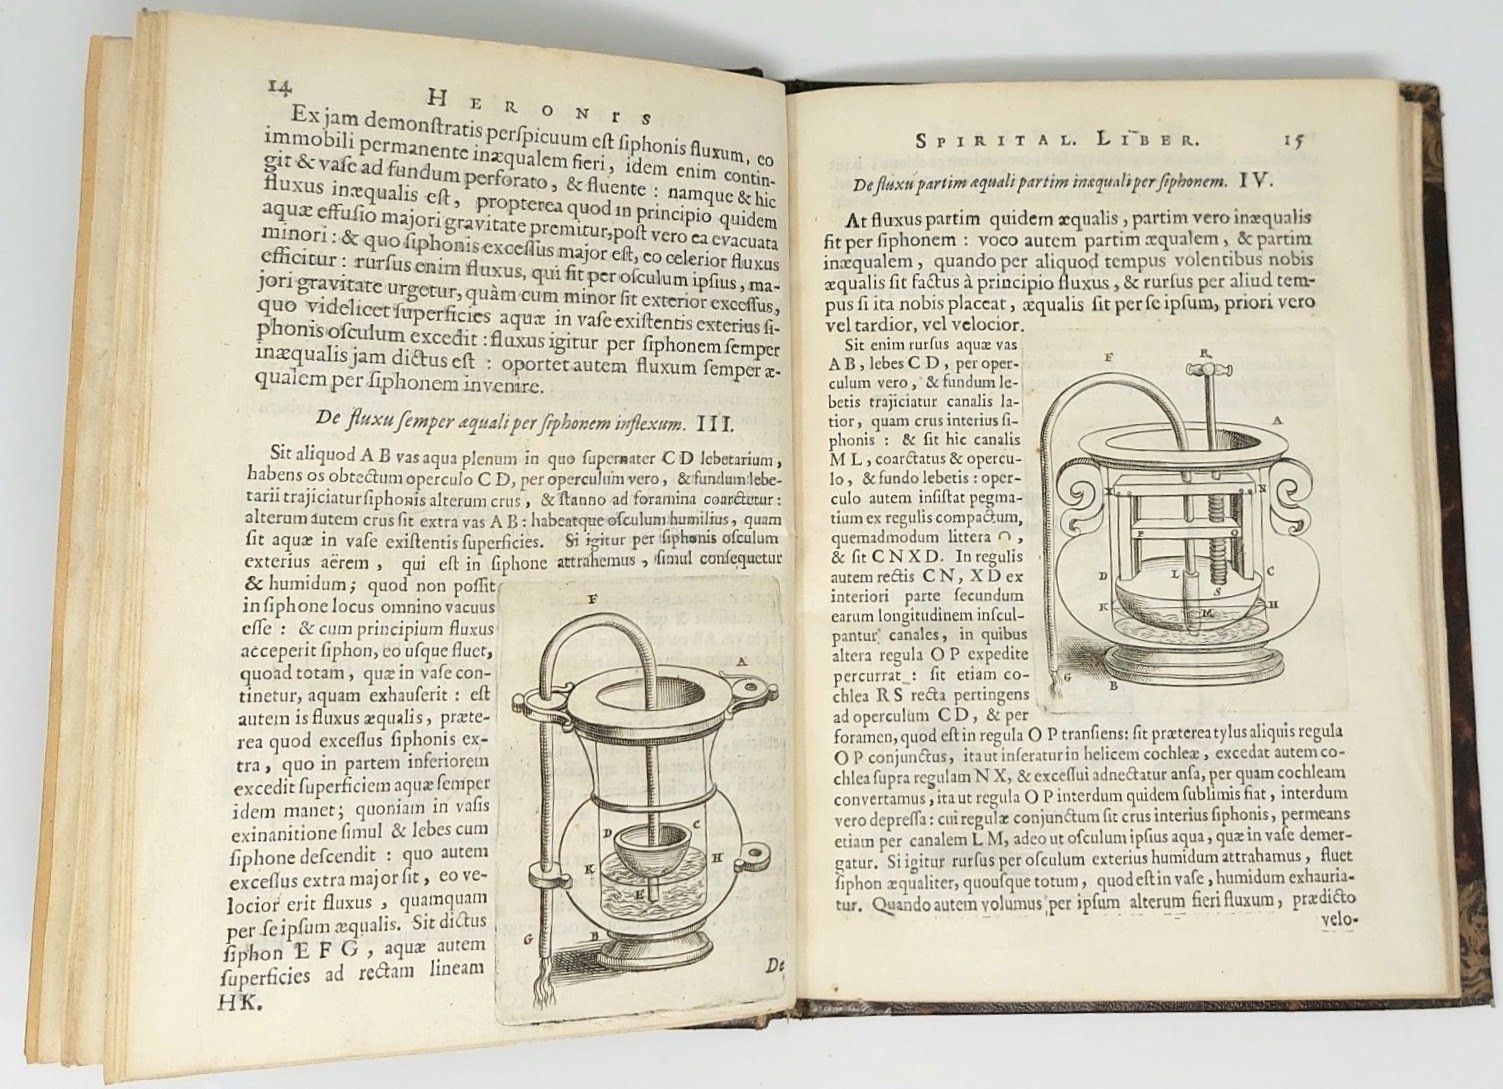 14
HERONIS
Ex jam demonſtratis perſpicuum eſt ſiphonis fluxum, eo
immobili permanente inæqualem fieri, idem enim contin-
git & vaſe ad fundum perforato, & fluente : namque & hic
fluxus inæqualis eſt, propterea quod in principio quidem
aquæ effuſio majori gravitate premitur, poſt vero ea evacuata
minori : & quo ſiphonis exceſſus major eſt, eo celerior fluxus
efficitur : rurſus enim fluxus, qui fit per oſculum ipſius, ma-
jori gravitate urgetur, quàm cum minor ſit exterior exceſſus,
quo videlicet ſuperficies aquæ in vaſe exiſtentis exterius ſi-
phonis oſculum excedit : fluxus igitur per ſiphonem ſemper
inæqualis jam dictus eſt : oportet autem fluxum ſemper æ-
qualem per ſiphonem invenire.
De fluxu ſemper æquali per ſiphonem inflexum. III.
Sit aliquod A B vas aqua plenum in quo ſupernater C D lebetarium,
habens os obtectum operculo C D, per operculum vero, & fundum lebe-
tarii trajiciatur ſiphonis alterum crus, & ſtanno ad foramina coarctetur :
alterum autem crus ſit extra vas A B : habeatque oſculum humilius, quam
ſit aquæ in vaſe exiſtentis ſuperficies. Si igitur per ſiphonis oſculum
exterius aërem, qui eſt in ſiphone attrahemus, ſimul conſequetur
& humidum; quod non poſſit
in ſiphone locus omnino vacuus
eſſe : & cum principium fluxus
acceperit ſiphon, eo uſque fluet,
quoad totam, quæ in vaſe con-
tinetur, aquam exhauſerit : eſt
autem is fluxus æqualis, præte-
rea quod exceſſus ſiphonis ex-
tra, quo in partem inferiorem
excedit ſuperficiem aquæ ſemper
idem manet; quoniam in vaſis
exinanitione ſimul & lebes cum
ſiphone deſcendit : quo autem
exceſſus extra major ſit, eo ve-
locior erit fluxus, quamquam
per ſe ipſum æqualis. Sit dictus
ſiphon E F G, aquæ autem
ſuperficies ad rectam lineam
HK.
F
A
D
C
K
H
E
G
B
De
SPIRITAL. LIBER.
15
De fluxu partim æquali partim inæquali per ſiphonem. IV.
At fluxus partim quidem æqualis, partim vero inæqualis
fit per ſiphonem : voco autem partim æqualem, & partim
inæqualem, quando per aliquod tempus volentibus nobis
æqualis ſit factus à principio fluxus, & rurſus per aliud tem-
pus ſi ita nobis placeat, æqualis ſit per ſe ipſum, priori vero
vel tardior, vel velocior.
Sit enim rurſus aquæ vas
A B, lebes C D, per oper-
culum vero, & fundum le-
betis trajiciatur canalis la-
tior, quam crus interius ſi-
phonis : & ſit hic canalis
M L, coarctatus & opercu-
lo, & fundo lebetis : oper-
culo autem inſiſtat pegma-
tium ex regulis compactum,
quemadmodum littera ∩,
& ſit C N X D. In regulis
autem rectis C N, X D ex
interiori parte ſecundum
earum longitudinem inſcul-
pantur canales, in quibus
altera regula O P expedite
percurrat : ſit etiam co-
chlea R S recta pertingens
ad operculum C D, & per
foramen, quod eſt in regula O P tranſiens : ſit præterea tylus aliquis regula
O P conjunctus, ita ut inſeratur in helicem cochleæ, excedat autem co-
chlea ſupra regulam N X, & exceſſui adnectatur anſa, per quam cochleam
convertamus, ita ut regula O P interdum quidem ſublimis fiat, interdum
vero depreſſa : cui regulæ conjunctum ſit crus interius ſiphonis, permeans
etiam per canalem L M, adeo ut oſculum ipſius aqua, quæ in vaſe demer-
gatur. Si igitur rurſus per oſculum exterius humidum attrahamus, fluet
ſiphon æqualiter, quouſque totum, quod eſt in vaſe, humidum exhauria-
tur. Quando autem volumus per ipſum alterum fieri fluxum, prædicto
velo-
F
R
A
X
N
P
O
D
L
C
S
K
M
H
G
B